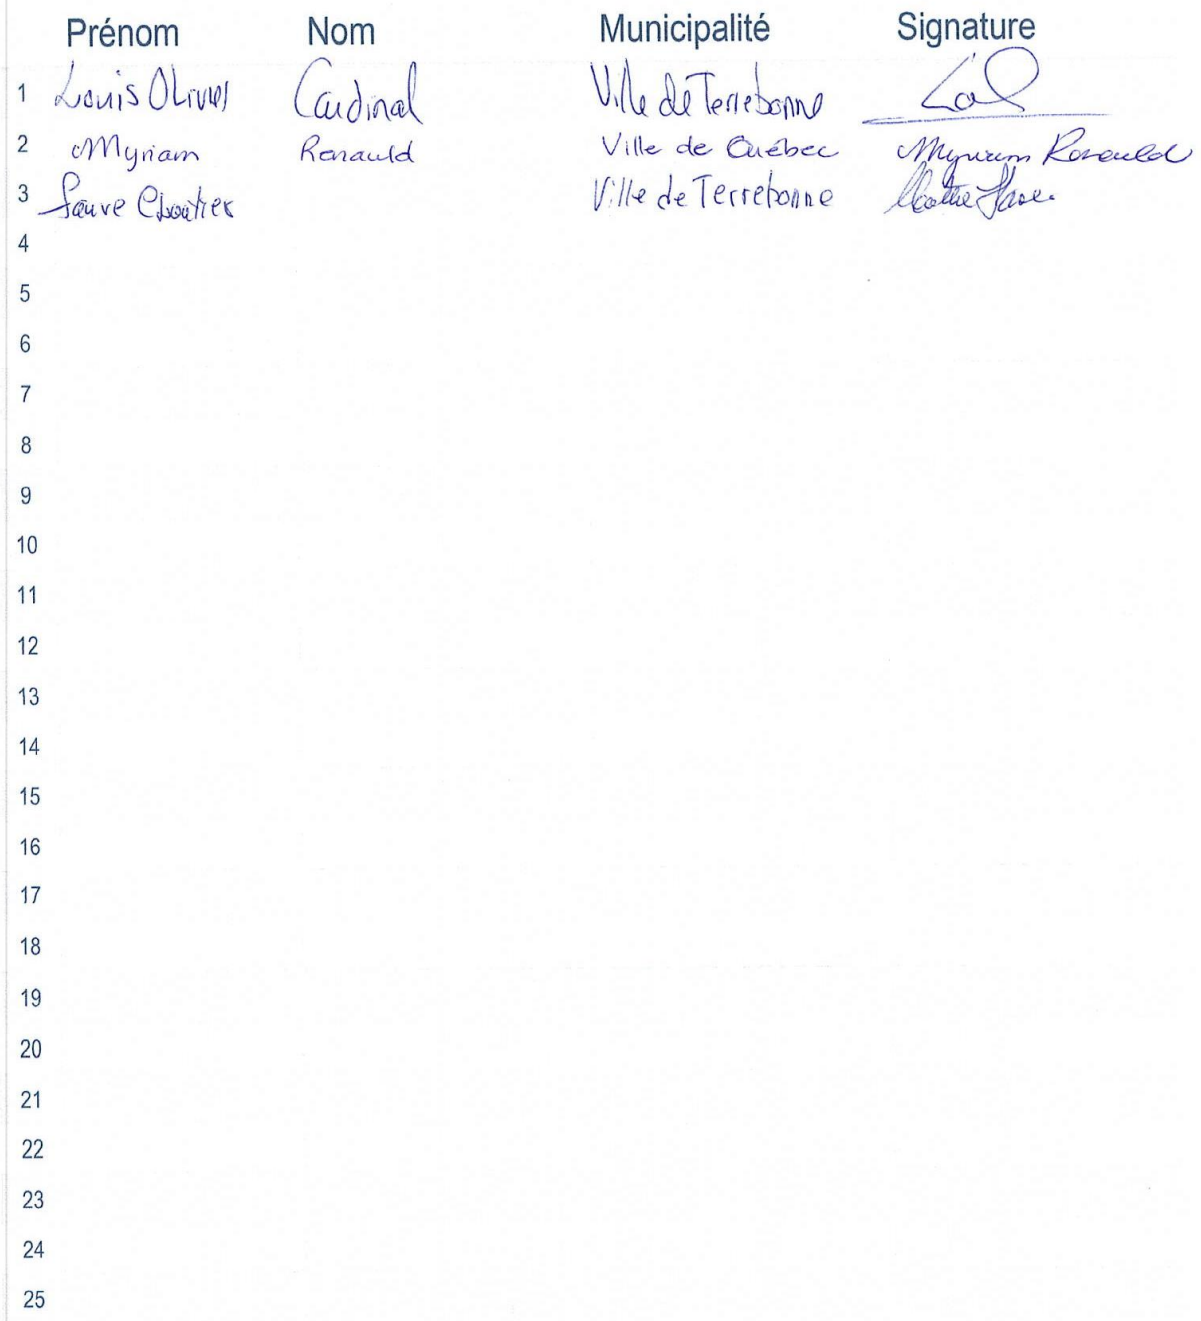 Prénom Nom Municipalité Signature
1 Louis Olivier Cardinal Ville de Terrebonne
2 Myriam Renauld Ville de Québec Myriam Renauld
3 Ville de Terrebonne
4
5
6
7
8
9
10
11
12
13
14
15
16
17
18
19
20
21
22
23
24
25